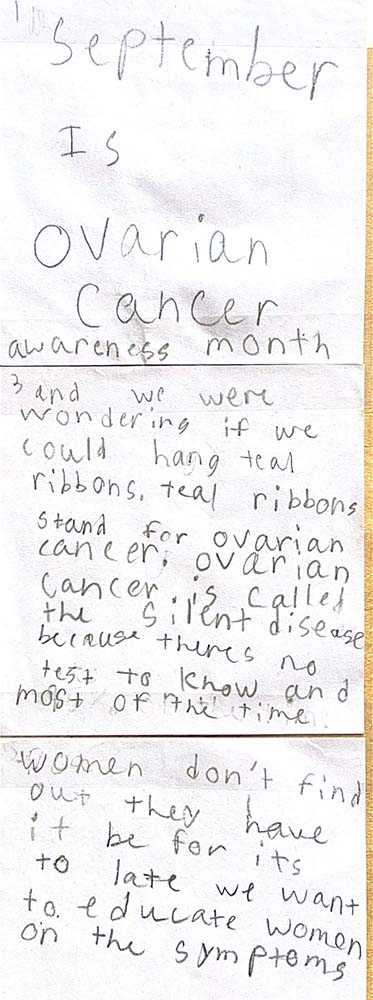 1
September
Is
Ovarian
Cancer
awareness month
3 and we were
wondering if we
could hang teal
ribbons. teal ribbons
stand for ovarian
cancer. ovarian
cancer is called
the silent disease
because theres no
test to know and
most of the time
women don't find
out they have
it be for its
to late we want
to educate women
on the symptoms